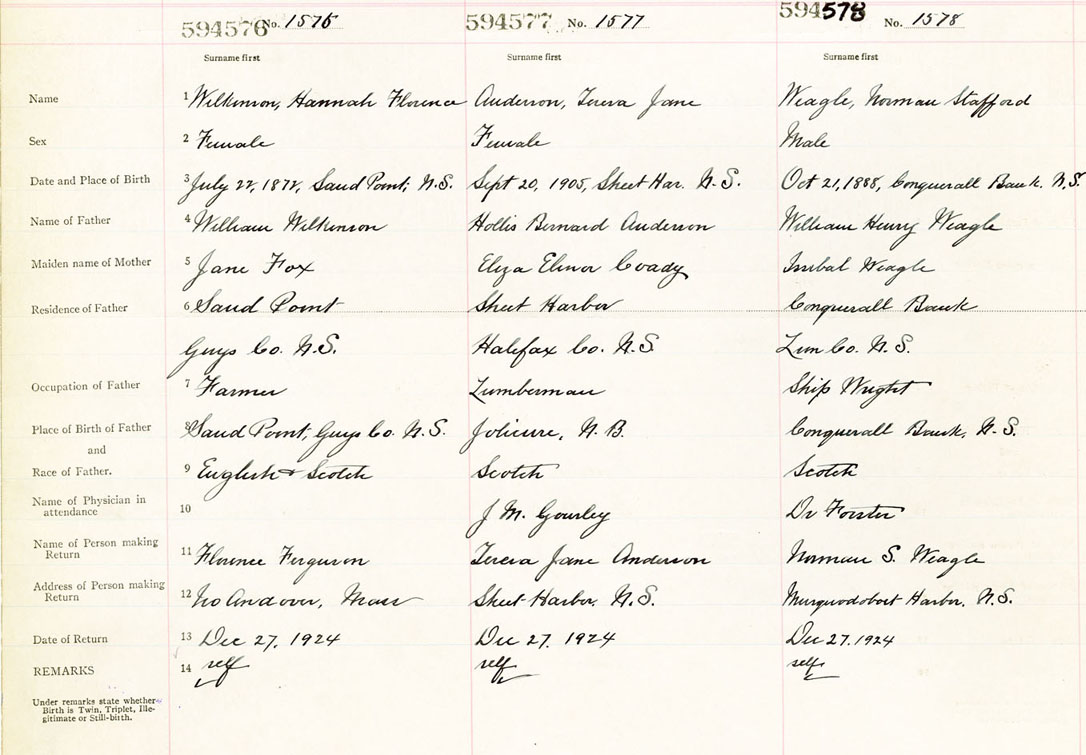 594576 No. 1576 594577 No. 1577 594578 No. 1578
Surname first Surname first Surname first
Name 1 Wilkinson, Hannah Florence Anderson, Teresa Jane Weagle, Norman Stafford
Sex 2 Female Female Male
Date and Place of Birth 3 July 22, 1872, Sand Point, N.S. Sept 20, 1905, Sheet Har. N.S. Oct 21, 1888, Conquerall Bank. N.S.
Name of Father 4 William Wilkinson Hollis Bernard Anderson William Henry Weagle
Maiden name of Mother 5 Jane Fox Eliza Elinor Coady Weagle
Residence of Father 6 Sand Point Sheet Harbor Conquerall Bank
Guys Co. N.S. Halifax Co. N.S. Lun Co. N.S.
Occupation of Father 7 Farmer Lumberman Ship Wright
Place of Birth of Father 8 Sand Point, Guys Co. N.S. Jolicure, N.B. Conquerall Bank, N.S.
and
Race of Father. 9 English & Scotch Scotch Scotch
Name of Physician in
attendance 10 J M. Gourley Dr Forster
Name of Person making
Return 11 Florence Ferguson Teresa Jane Anderson Norman S. Weagle
Address of Person making
Return 12 No Andover, Mass Sheet Harbor, N.S. Musquodoboit Harbor, N.S.
Date of Return 13 Dec 27, 1924 Dec 27, 1924 Dec 27, 1924
REMARKS 14 self self self
Under remarks state whether
Birth is Twin, Triplet, Ille-
gitimate or Still-birth.